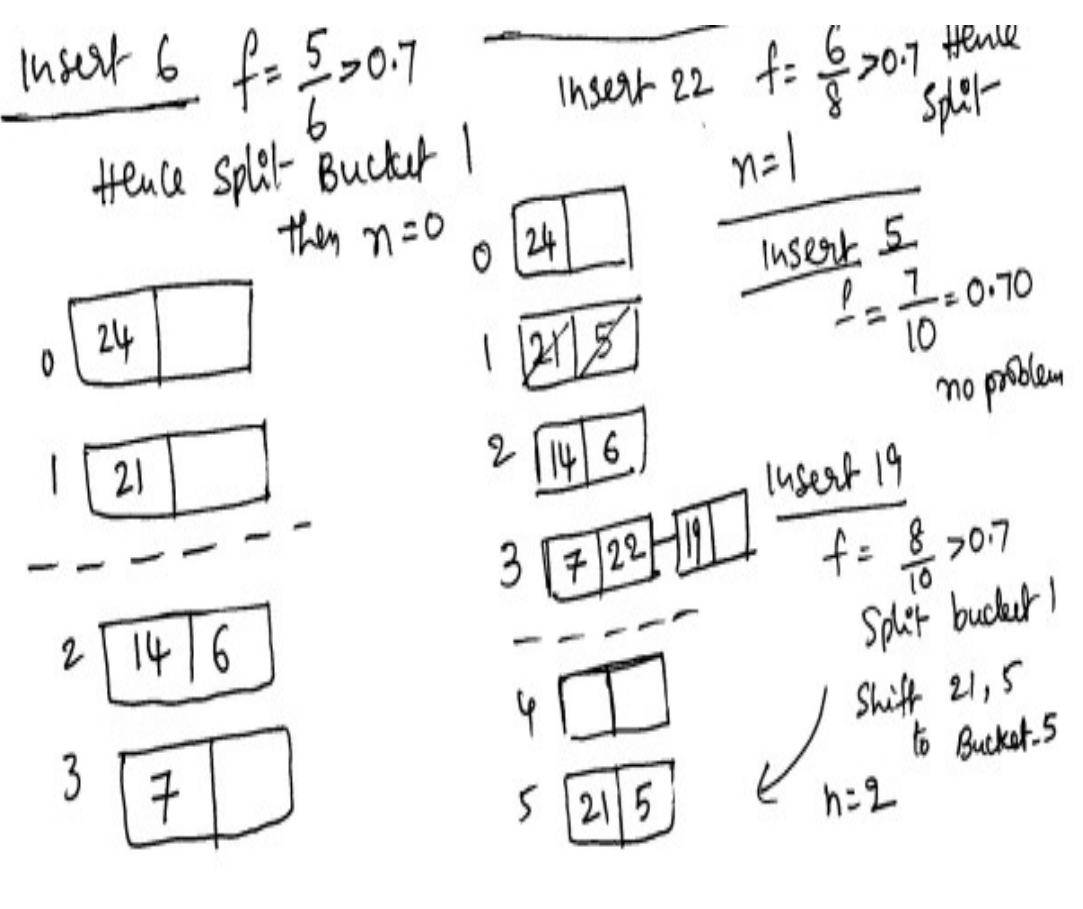 Insert 6 f= 5/6 >0.7
Hence Split Bucket 1
then n=0
0 24
1 21
2 14 6
3 7
Insert 22 f= 6/8 >0.7 Hence
Split
n=1
0 24
1 21 5
2 14 6
3 7 22 19
4
5 21 5
Insert 5
f = 7/10 = 0.70
no problem
Insert 19
f = 8/10 >0.7
Split bucket 1
Shift 21, 5
to Bucket-5
n=2